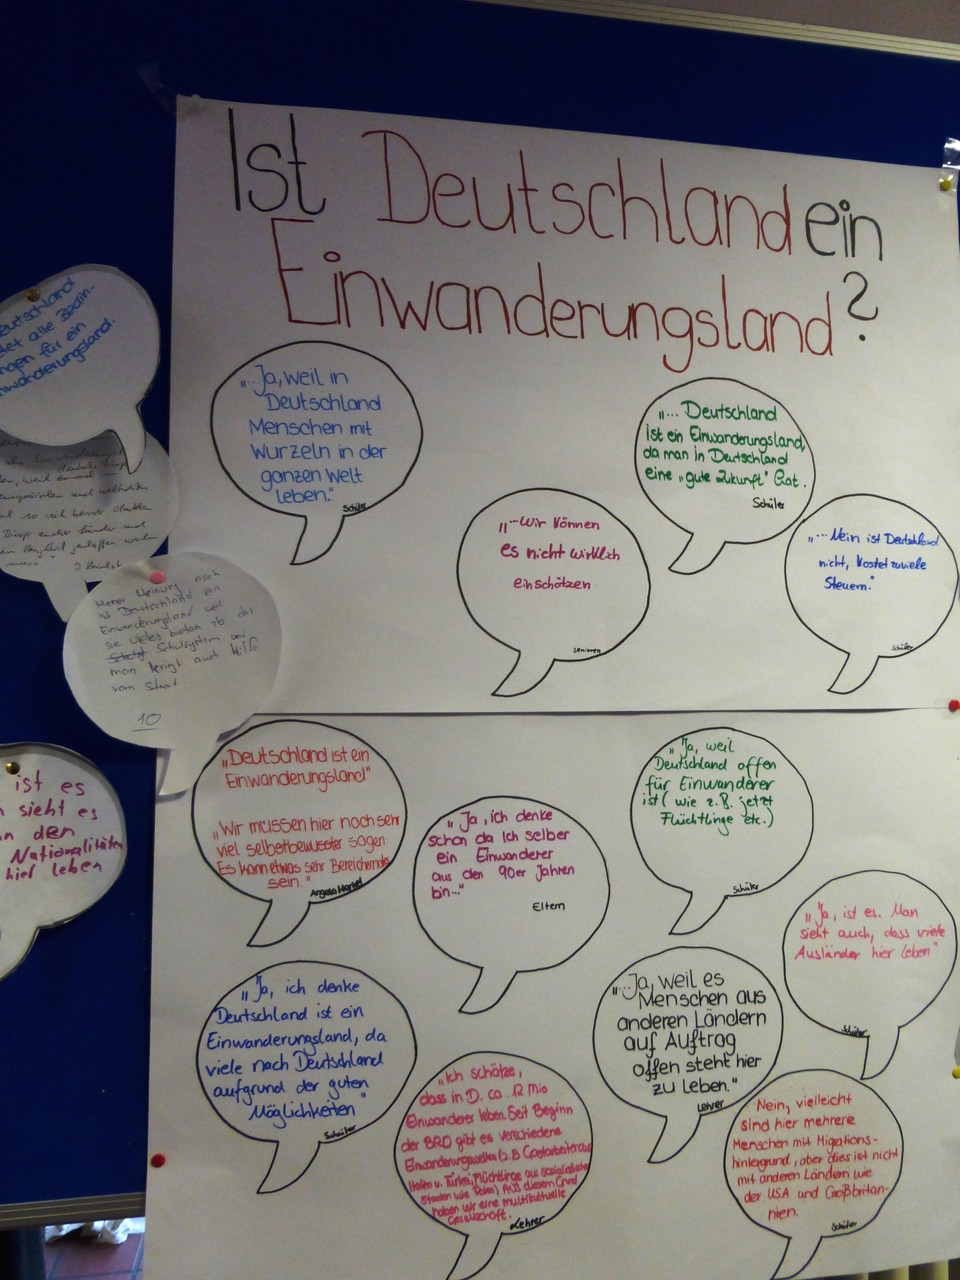 Ist Deutschland ein
Einwanderungsland?
„...Ja, weil in
Deutschland
Menschen mit
Wurzeln in der
ganzen Welt
leben."
Schüler
„... Deutschland
ist ein Einwanderungsland,
da man in Deutschland
eine „gute Zukunft" hat.
Schüler
„...Wir können
es nicht wirklich
einschätzen
Senioren
„...Nein ist Deutschland
nicht, kostet zuviele
Steuern."
Schüler
„Deutschland ist ein
Einwanderungsland"
„Wir müssen hier noch sehr
viel selbstbewusster sagen:
Es kann etwas sehr Bereicherndes
sein."
Angela Merkel
„Ja, ich denke
schon da ich selber
ein Einwanderer
aus den 90er Jahren
bin..."
Eltern
„Ja, weil
Deutschland offen
für Einwanderer
ist (wie z.B. jetzt
Flüchtlinge etc.)
Schüler
„Ja, ist es. Man
sieht auch, dass viele
Ausländer hier leben"
Schüler
„Ja, ich denke
Deutschland ist ein
Einwanderungsland, da
viele nach Deutschland
aufgrund der guten
Möglichkeiten"
Schüler
„...Ja, weil es
Menschen aus
anderen Ländern
auf Auftrag
offen steht hier
zu leben."
Lehrer
„Ich schätze,
dass in D. ca. 12 Mio
Einwanderer leben. Seit Beginn
der BRD gibt es verschiedene
Einwanderungswellen (z.B Gastarbeiter aus
Italien u. Türkei, Flüchtlinge aus sozialistischen
Staaten wie Polen) Aus diesem Grund
haben wir eine multikulturelle
Gesellschaft.
Lehrer
Nein, vielleicht
sind hier mehrere
Menschen mit Migrations-
hintergrund, aber dies ist nicht
mit anderen Ländern wie
der USA und Großbritan-
nien.
Schüler
Deutschland
alle Bedin-
gungen für ein
Einwanderungsland.
Meiner Meinung nach
ist Deutschland ein
Einwanderungsland weil
sie vieles bieten zb das
Schulsystem und
man kriegt auch Hilfe
vom Staat.
10
ist es
sieht es
an den
Nationalitäten
hier leben